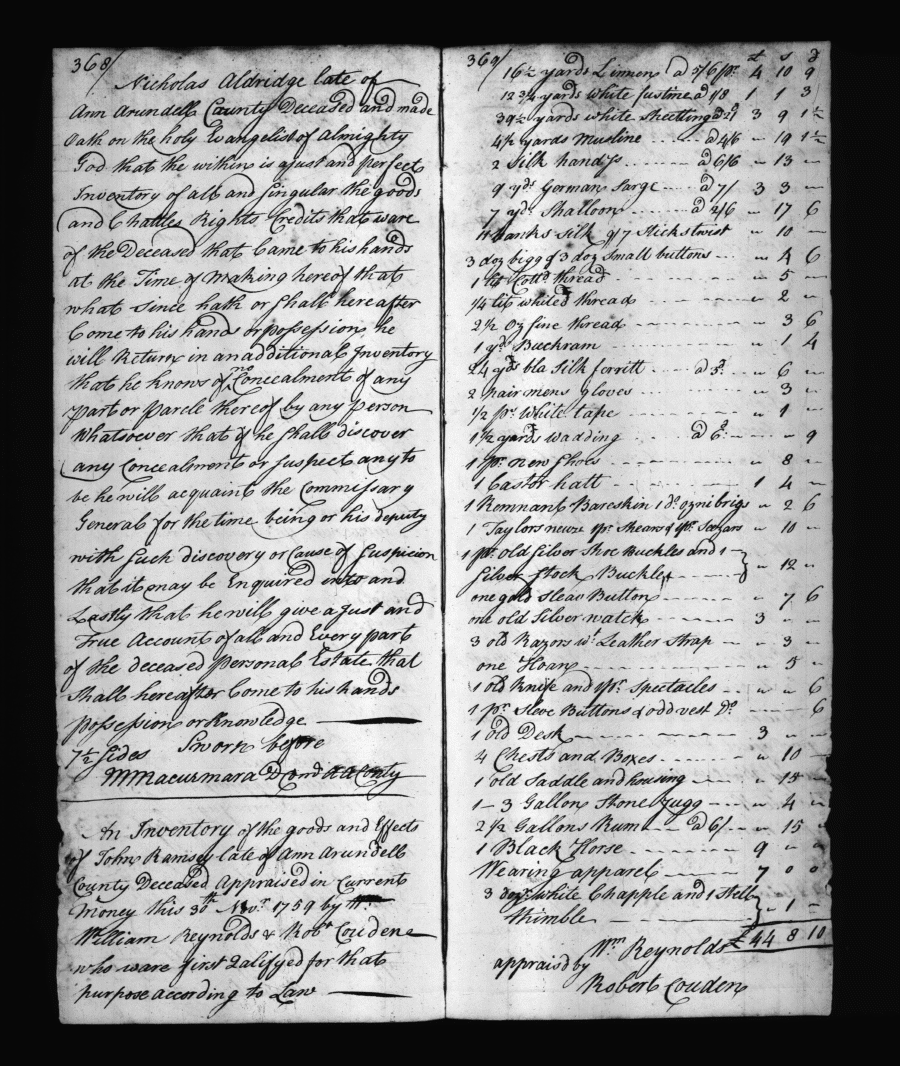 368/
Nicholas Aldridge late of
Ann Arundell County Deceased and made
Oath on the holy Evangelist of Almighty
God that the within is a just and perfect
Inventory of all and singular the goods
and Chattles Rights Credits that ware
of the Deceased that Came to his hands
at the Time of Making hereof that
what since hath or shall hereafter
Come to his hand or possession he
will Return in an additional Inventory
that he knows of no Concealment of any
part or parcle thereof by any person
whatsoever that if he shall discover
any Concealment or suspect any to
be he will acquaint the Commissary
General for the time being or his deputy
with such discovery or Cause of Suspicion
that it may be Enquired into and
Lastly that he will give a just and
True Account of all and Every part
of the deceased Personal Estate that
shall hereafter Come to his hands
possession or knowledge
7½ sides Sworn before
Macnemara D Comd AA County
An Inventory of the goods and Effects
of John Ramsey late of Ann Arundell
County Deceased Appraised in Current
Money this 30th Novr 1759 by
William Reynolds & Robt Couden
who ware first Qalifyed for that
purpose according to Law
369/ £ s d
16½ yards Linnen @ 5/6 pr 4 10 9
12¾ yards white fustine @ 1/8 1 1 3
39½ yards white sheeting @ 21 3 9 1½
4½ yards Musline @ 4/6 " 19 1½
2 Silk handfs @ 6/6 " 13 "
9 yds German Sarge @ 7/ 3 3 "
7 yds Shalloon @ 2/6 " 17 6
4 hanks silk & 7 sticks twist " 10 "
3 doz bigg & 3 doz Small buttons " 4 6
1 lb Colld thread " 5 "
¼ lb whited thread " 2 "
2½ Oz fine thread " 3 6
1 yd Buckram " 1 4
24 yds bla Silk ferritt @ 3d " 6 "
2 pair mens gloves " 3 "
½ ps White tape " 1 "
1½ yards wadding @ 6d " " 9
1 pr new Shoes " 8 "
1 Castor hatt 1 4 "
1 Remnant Bareskin 1 do oznibrigs " 2 6
1 Taylors newe pr Shears & pr Scizars " 10 "
1 pr old Silver Shoe Buckles and 1
Silver Stock Buckle " 12 "
one gold Sleav Button " 7 6
one old Silver watch 3 " "
3 old Razors wt Leather Strap " 3 "
one Hoan " 5 "
1 old Knife and 1 pr Spectacles " " 6
1 pr Sleve Buttons & odd vest Do 6
1 old Desk 3 " "
4 Chests and Boxes " 10 "
1 old Saddle and housing " 14 "
1 – 3 Gallon Stone Jugg " 4 "
2½ Gallons Rum @ 6/ " 15 "
1 Black Horse 9 " "
Wearing apparel 7 0 0
3 doz white Chapple and 1 Stell
thimble " 1 "
£44 8 10
appraisd by Wm Reynolds
Robert Couden